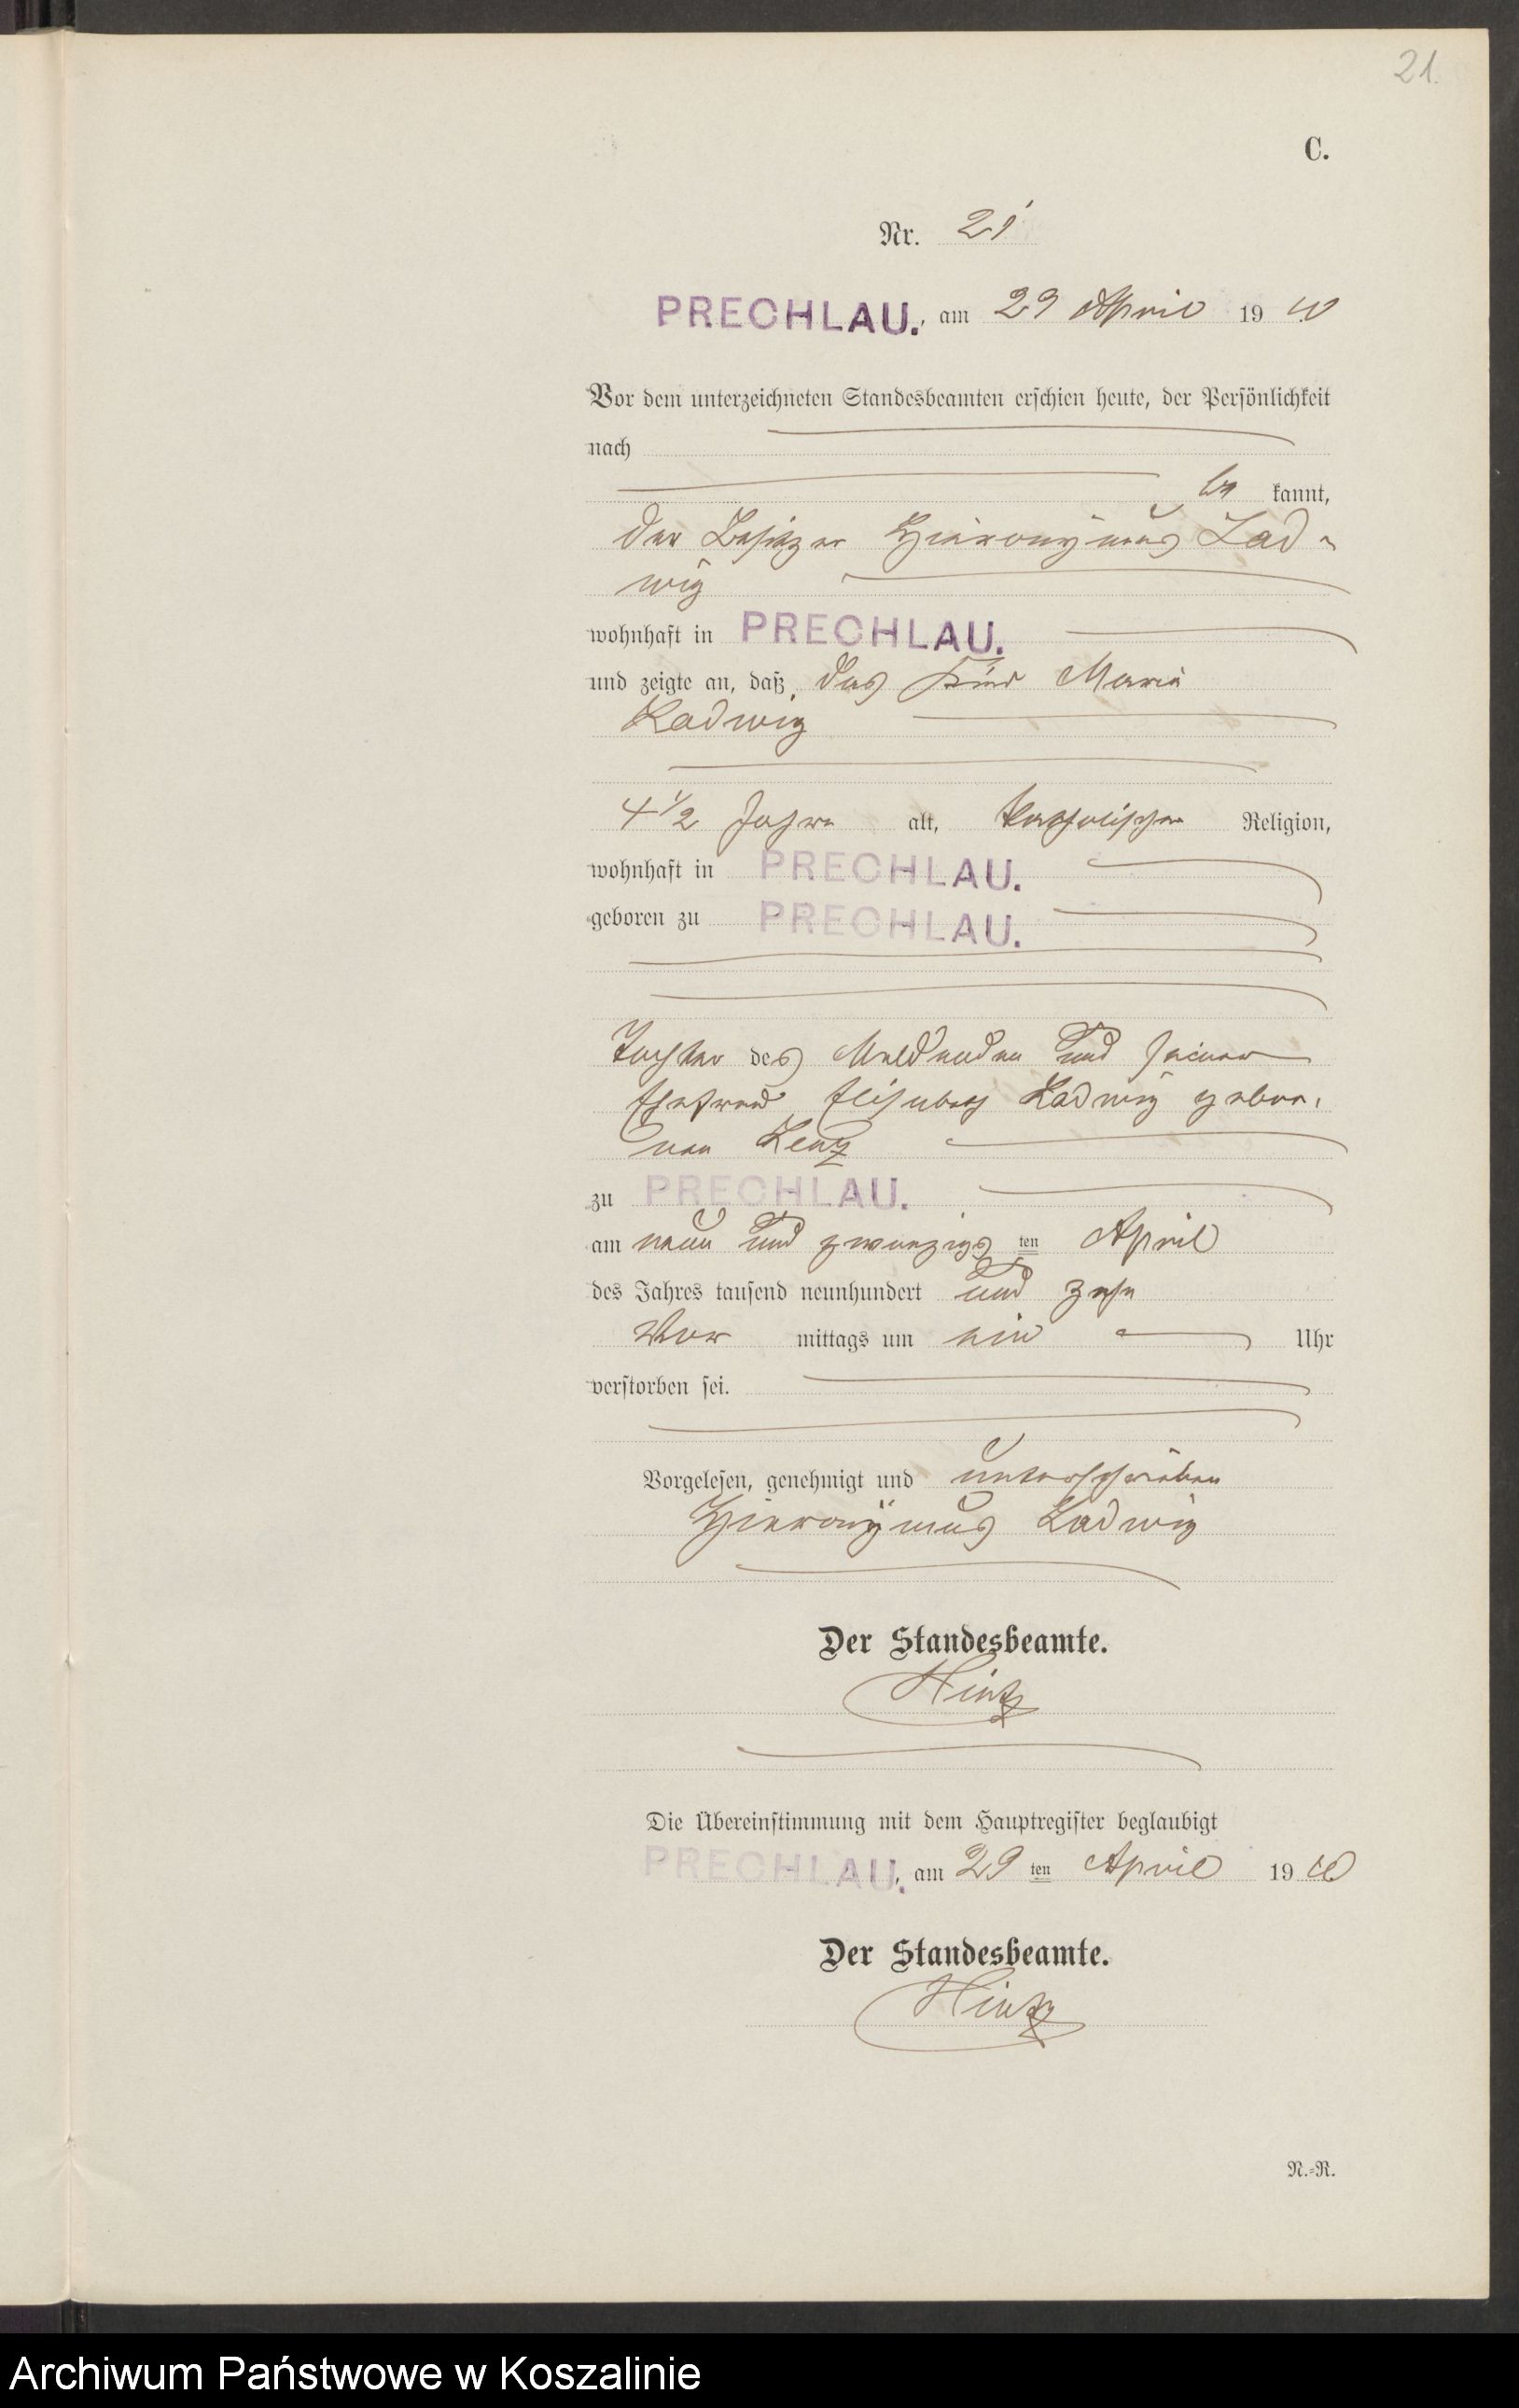 21.
C.
Nr. 21
PRECHLAU., am 29 April 19 10
Vor dem unterzeichneten Standesbeamten erschien heute, der Persönlichkeit
nach
be kannt,
der Besitzer Hieronymus Lad-
wig
wohnhaft in PRECHLAU.
und zeigte an, daß das Kind Maria
Ladwig
4 1/2 Jahre alt, katholischer Religion,
wohnhaft in PRECHLAU.
geboren zu PRECHLAU.
Tochter des Meldenden und seiner
Ehefrau Elisabeth Ladwig gebore-
nen Lenz
zu PRECHLAU.
am neun und zwanzigsten April
des Jahres tausend neunhundert und zehn
Vor mittags um ein Uhr
verstorben sei.
Vorgelesen, genehmigt und unterschrieben
Hieronymus Ladwig
Der Standesbeamte.
Hintz
Die Übereinstimmung mit dem Hauptregister beglaubigt
PRECHLAU., am 29 ten April 19 10
Der Standesbeamte.
Hintz
N.=R.
Archiwum Państwowe w Koszalinie